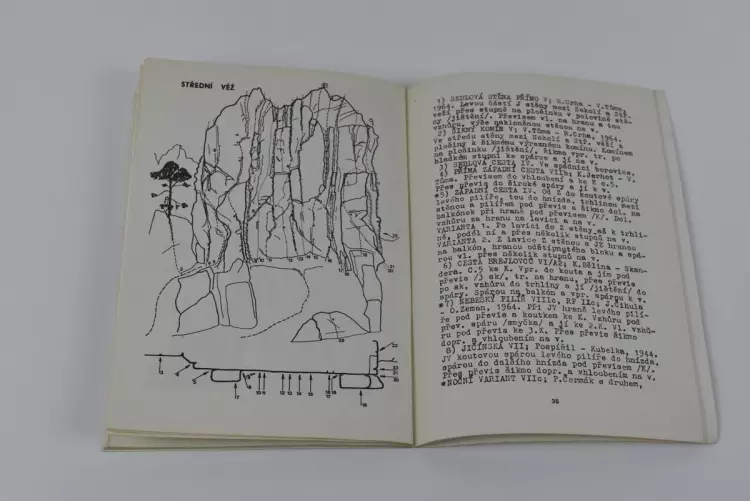 STŘEDNÍ VĚŽ
1) SEDLOVÁ STĚNA PŘÍMO V; R.Urba - V.Tůma,
1964. Levou částí J stěny mezi Sokolí a Stř.
veží přes stupně na plošinku v polovině stě-
ny /jištění/. Převisem vl. na hranu a tou
vzhůru, výše nakloněnou stěnou na v.
2) ŠIKMÝ KOMÍN V; V.Tůma - R.Urba, 1964.
Ve středu stěny mezi Sokolí a Stř. věží s
plošiny k šikmému výraznému komínu. Komínem
na plošinku /jištění/. Šikmo vpr. tr. po
hladkém stupni ke spáře a jí na v.
3) SEDLOVÁ CESTA IV. Ve spádnici borovice.
4) PŘÍMÁ ZÁPADNÍ CESTA VIIb; K.Jerhot - V.
Tůma. Převisem do vhloubení a ke K c.5.
Přes převis do široké spáry a jí k v.
*5) ZÁPADNÍ CESTA IV. Od Z do koutové spáry
levého pilíře, tou do hnízda, trhlinou mezi
stěnou a pilířem pod převis a šikmo dol. na
balkónek při hraně pod převisem /K/. Dol.
vzhůru za hranu na lavici a na v.
VARIANTA 1. Po lavici do Z stěny až k trhli-
ně, podél ní a přes několik stupňů na v.
VARIANTA 2. Z lavice Z stěnou a JZ hranou
na balkón, hranou odštípnutého bloku a spá-
rou vl. přes několik stupňů na v.
6) CESTA BREJLOVCŮ VI/AŽ; K.Bělina - Skan-
dera. C.5 ke K. Vpr. do kouta a jím pod
převis /3 sk/, tr. na hranu, přes převis
po sk. vzhůru do trhliny a jí /jištění/ do
spáry. Spárou na balkón a vpr. spárou k v.
*7) NEBESKÝ PILÍŘ VIIIc, RF IXc; J.Cihula
- O.Zeman, 1964. Při JV hraně levého pilí-
ře pod převis a koutkem ke K. Vzhůru pod
přev. spáru /smyčka/ a jí ke 2.K. Vl. vzhů-
ru pod převis ke 3.K. Přes převis šikmo
dopr. a vhloubením na v.
8) JIČÍNSKÁ VII; Pospíšil - Kubelka, 1944.
JV koutovou spárou levého pilíře do hnízda,
spárou do dalšího hnízda pod převisem /K/.
Přes převis šikmo dopr. a vhloubením na v.
*NOČNÍ VARIANT VIIc; P.Čermák s druhem,
35